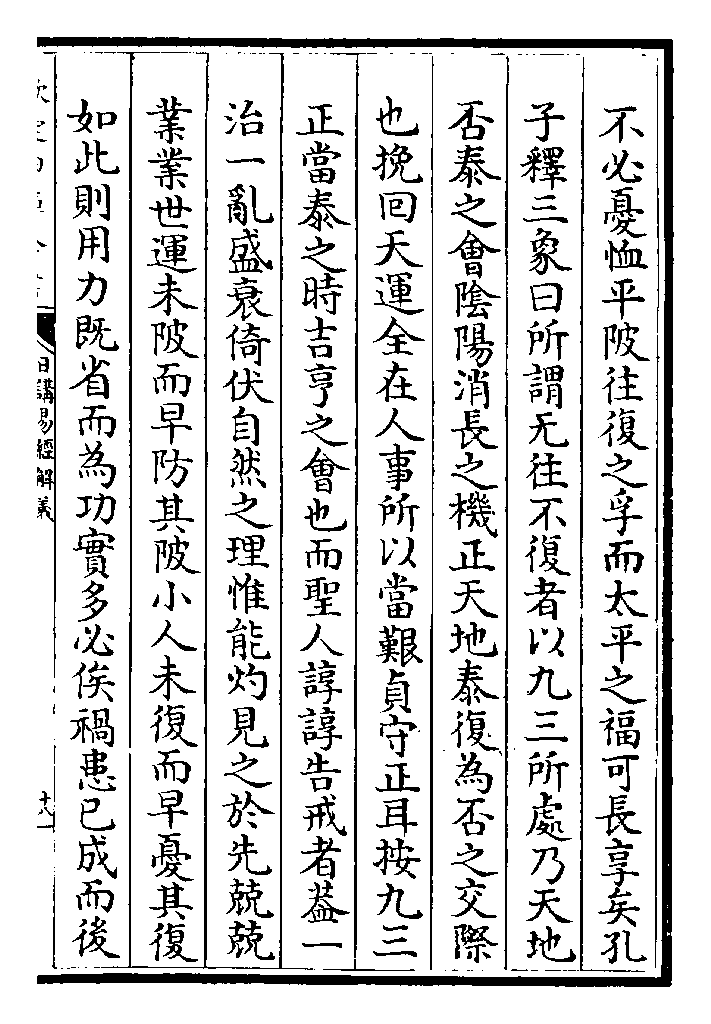 不必憂恤平陂往復之孚而太平之福可長享矣孔
子釋三象曰所謂无往不復者以九三所處乃天地
否泰之會陰陽消長之機正天地泰復為否之交際
也挽回天運全在人事所以當艱貞守正耳按九三
正當泰之時吉亨之會也而聖人諄諄告戒者葢一
治一亂盛衰倚伏自然之理惟能灼見之於先兢兢
業業世運未陂而早防其陂小人未復而早憂其復
如此則用力既省而為功實多必俟禍患已成而後
日講易經解義
十八